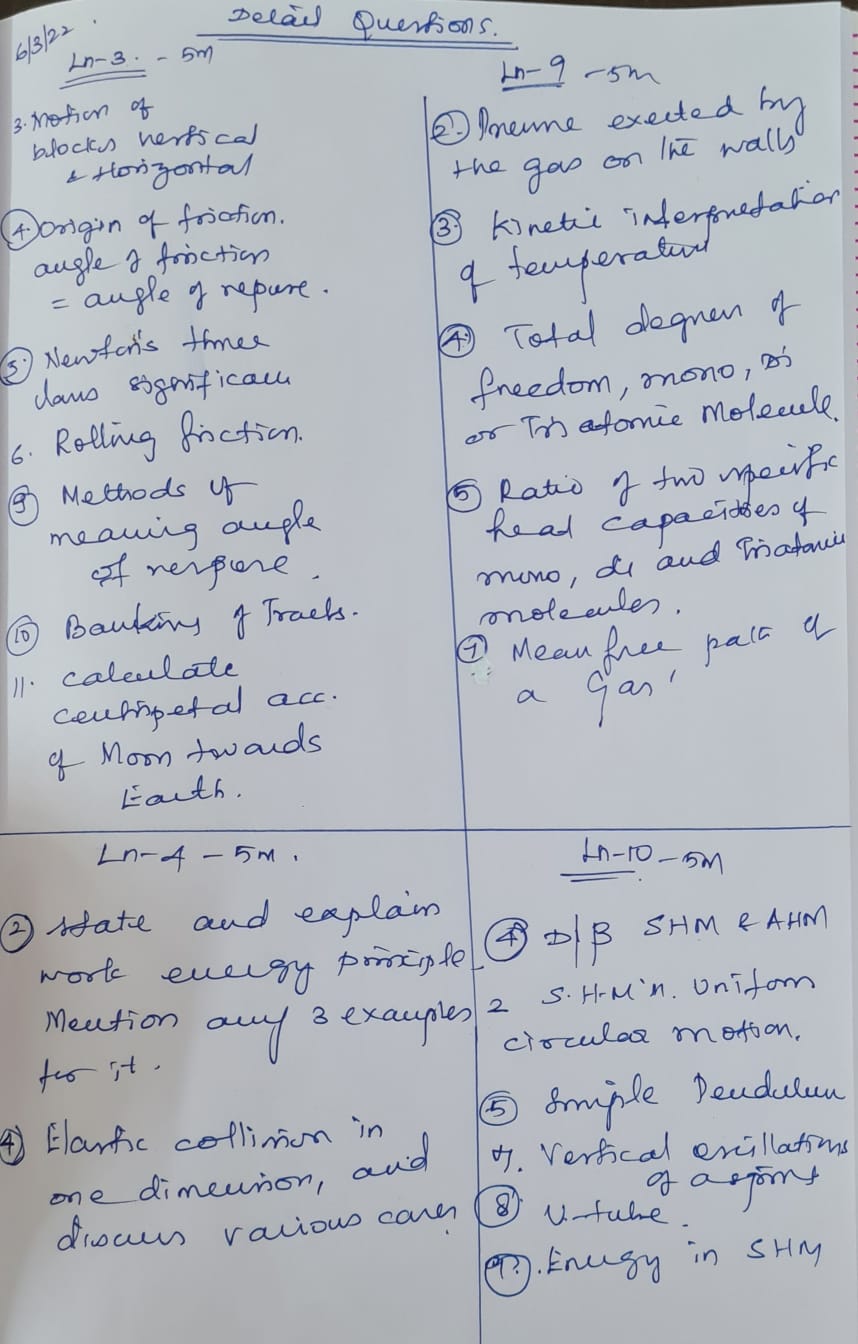 Detail Questions.
6/3/22.
Ln-3. - 5m
3. Motion of
blocks vertical
& Horizontal
4. Origin of friction.
angle of friction
= angle of repose.
5. Newton's three
laws significance
6. Rolling friction.
9 Methods of
meauing angle
of repose.
10 Banking of Tracks.
11. calculate
centripetal acc.
of Moon towards
Earth.
Ln-9 - 5m
2. Pressure exected by
the gas on the walls
3. Kinetic interpretation
of temperature
4. Total degrees of
freedom, mono, di
or Tri atomic Molecule.
5 Ratio of two specific
head capacities of
mono, di and Triatomic
molecules.
7 Mean free path of
a Gas'
Ln-4 - 5m.
2 state and explain
work energy principle
Mention any 3 examples
for it.
4 Elastic collision in
one dimension, and
discuss various cases
Ln-10 - 5M
4 D/B SHM & AHM
2 S.H.M'n. Uniform
circular motion.
5 Simple Pendulum
7. Vertical oscillations
of a spring
8 U-tube.
9. Energy in SHM